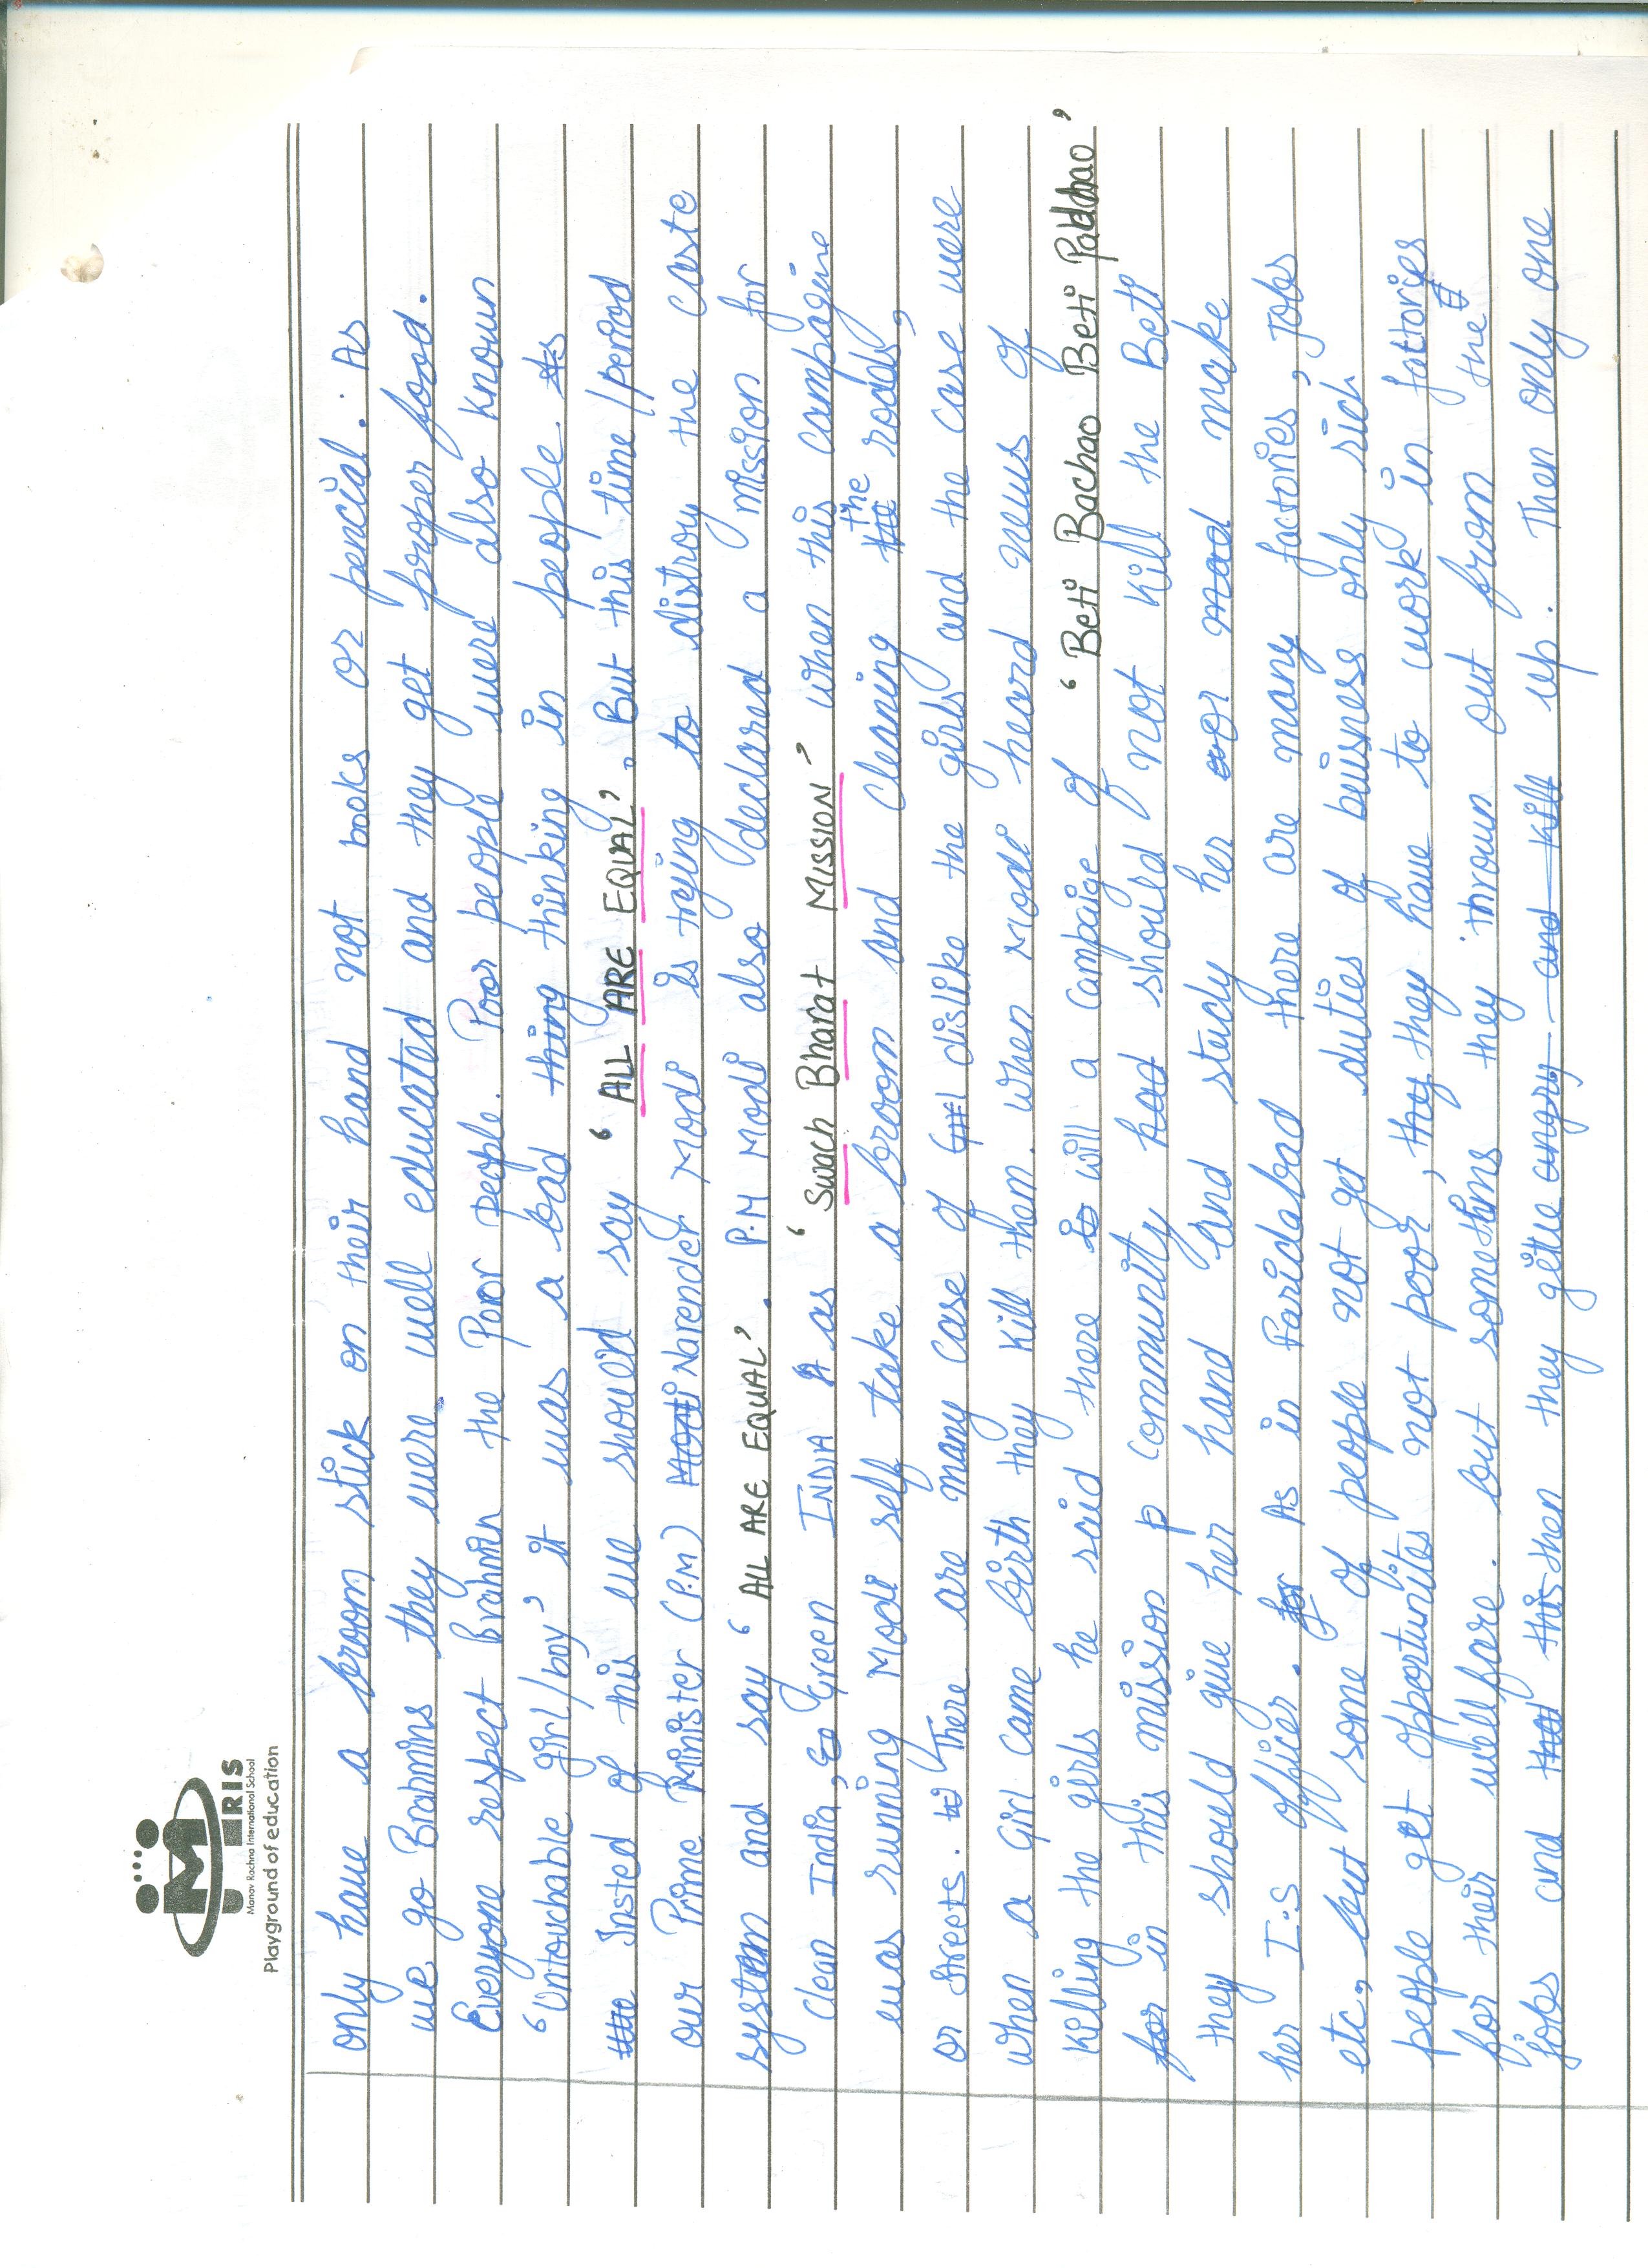 MRIS
Manav Rachna International School
Playground of education
only have a broom stick on their hand not books or pencial. As
we go Brahmins they were well educated and they get proper food.
Everyone respect Brahmin the Poor people. Poor people were also known
'Untouchable girl/boy' it was a bad thing thinking in people. As
the Insted of this we should say 'ALL ARE EQUAL'. But this time/period
our Prime Minister (P.M) Modi Narender Modi is trying to distroy the caste
system and say 'ALL ARE EQUAL'. P.M Modi also declared a mission for
clean India, Go Green INDIA A as 'Swach Bharat MISSION' when this campagine
the
was running Modi self take a broom and cleaning the roads,
or streets. There are many case of Girl dislike the girls and the case were
when a girl came birth they kill them. when Modi heard news of
killing the girls he said there is will a campaige of 'Beti Bachao Beti Padhao'
for in this mission p community had should not kill the Beti
they should give her hand and study her or mad make
her I.S officer. for As in Faridabad there are many factories, jobs
etc, but some of people not get duties of buisness only rich
people get opportunites not poor, they they have to work in fattories
the
for their wellfare. but somethms they thrown out from
jobs and that this then they gitte angry and kill up. Then only one